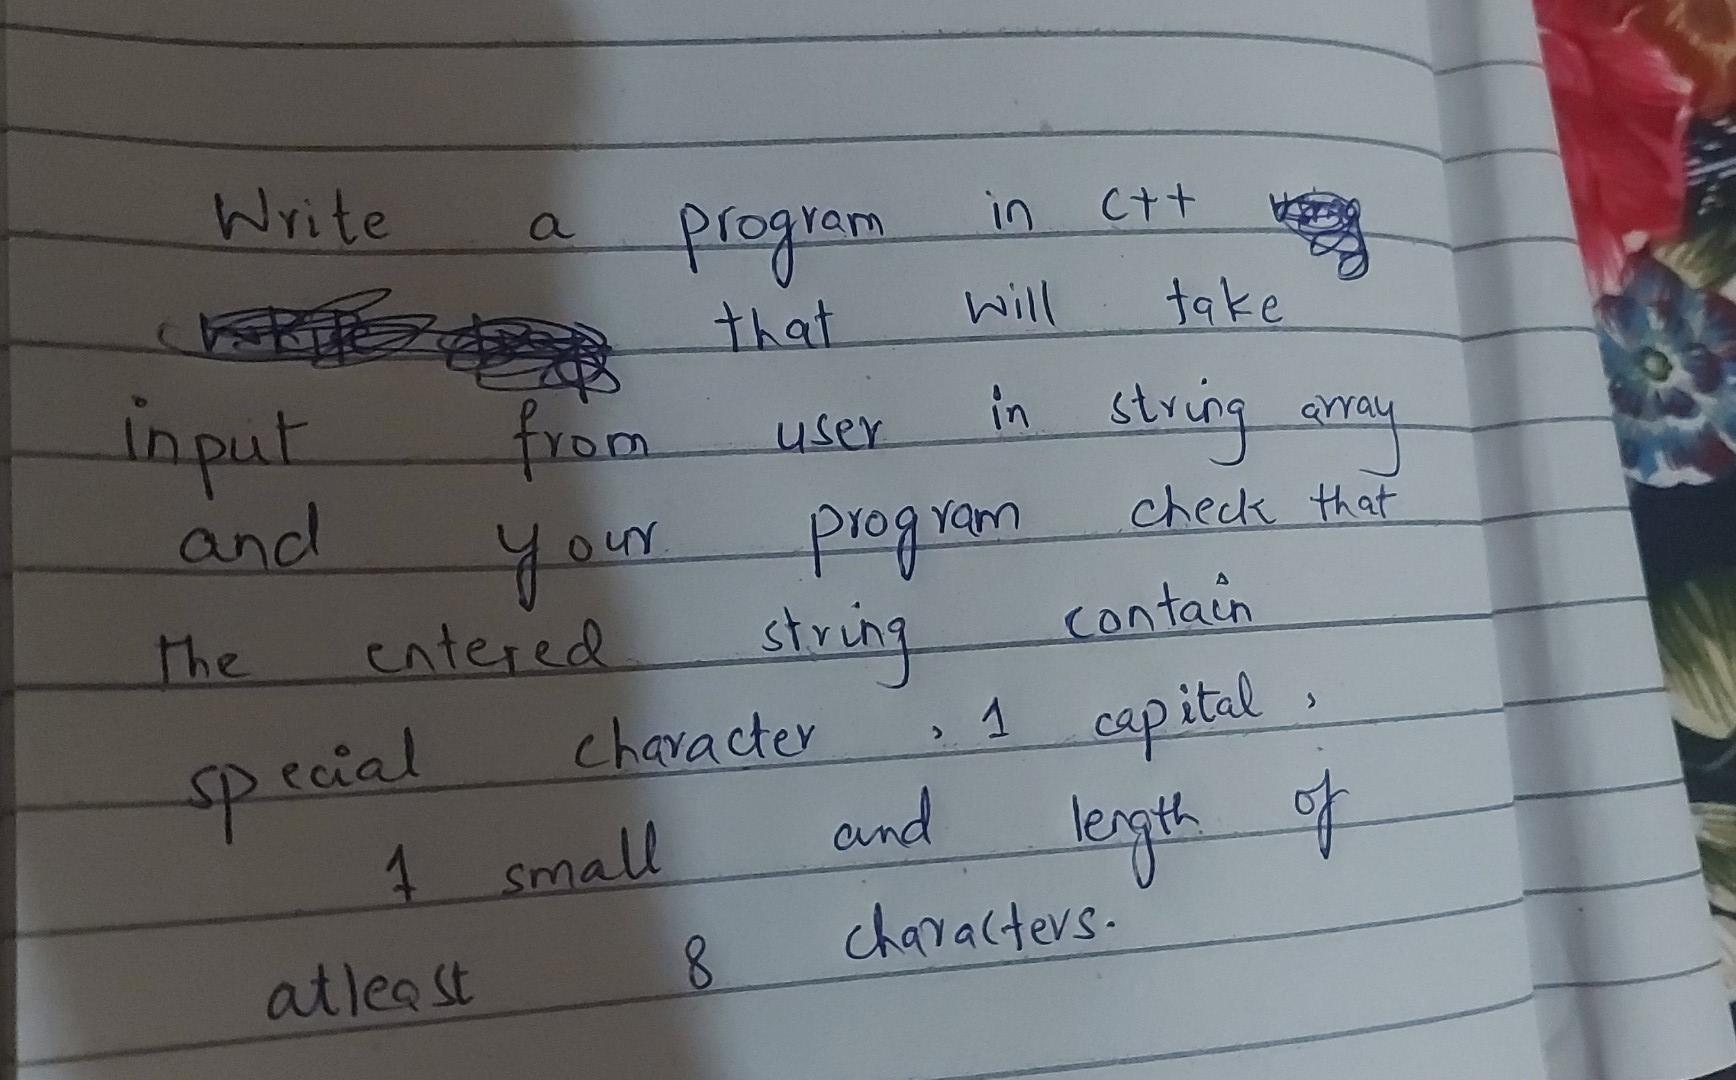 Write a program in C++
that will take
input from user in string array
and your program check that
the entered string contain
special character , 1 capital ,
1 small and length of
atleast 8 characters.